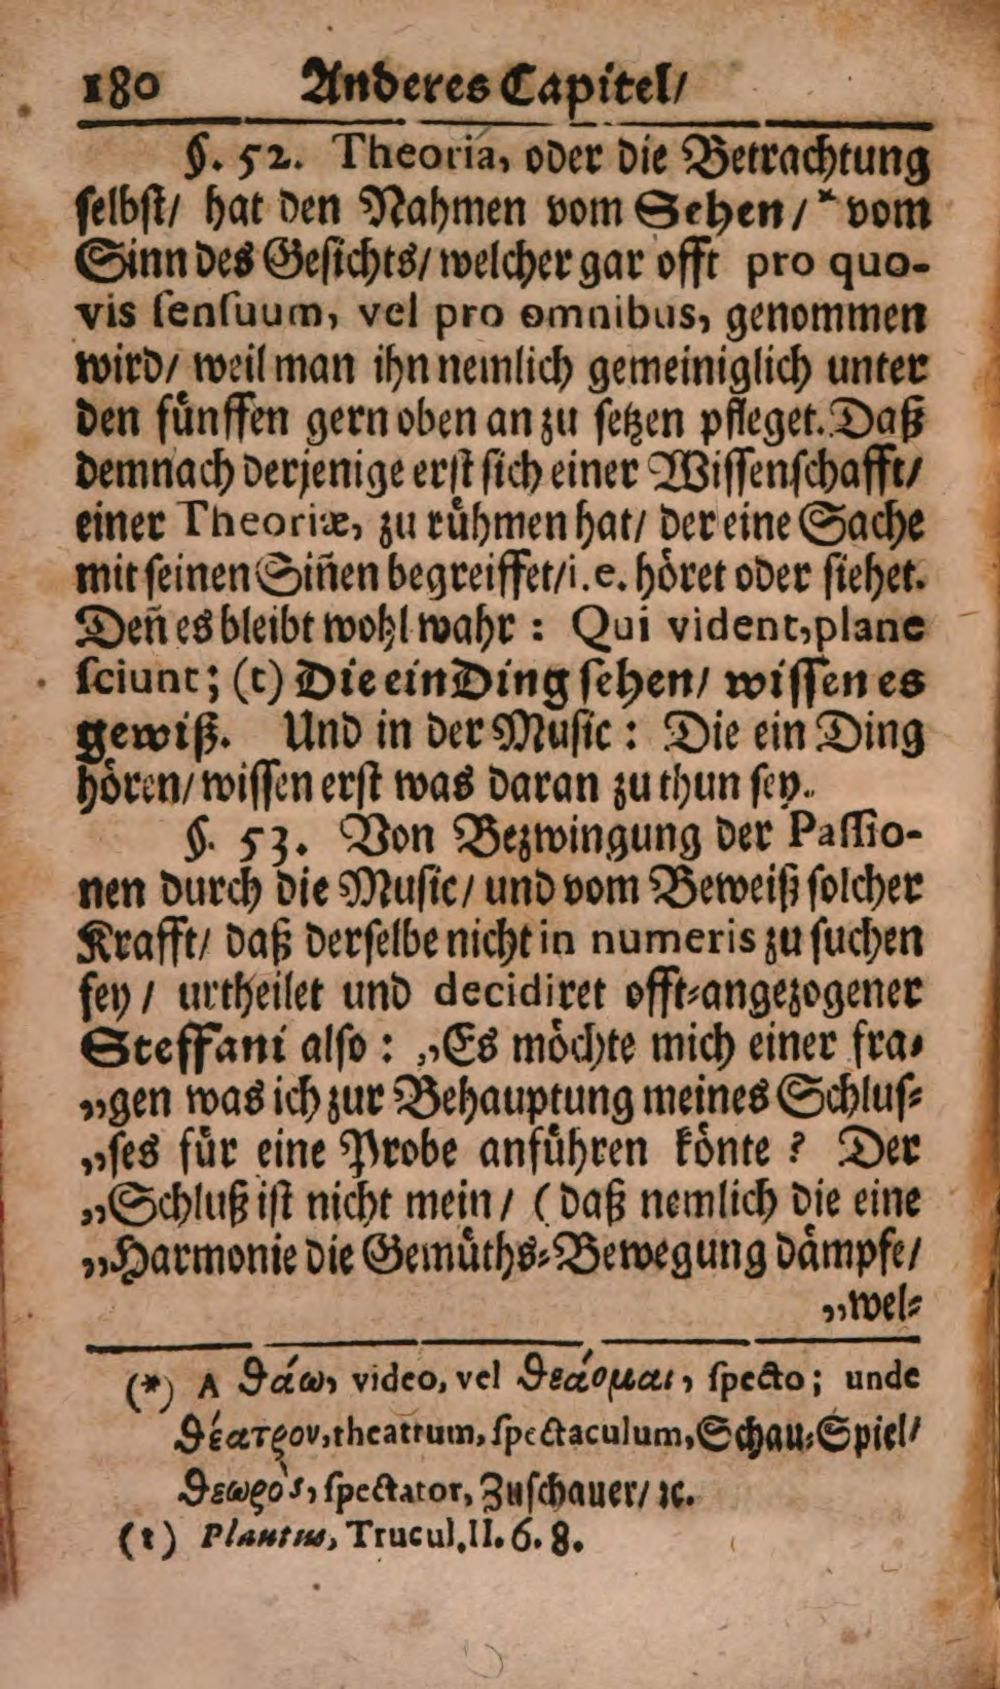 180 Anderes Capitel/
§. 52. Theoria, oder die Betrachtung
selbst/ hat den Nahmen vom Sehen/* vom
Sinn des Gesichts/ welcher gar offt pro quo-
vis sensuum, vel pro omnibus, genommen
wird/ weil man ihn nemlich gemeiniglich unter
den fünffen gern oben an zu setzen pfleget. Daß
demnach derjenige erst sich einer Wissenschafft/
einer Theoriæ, zu rühmen hat/ der eine Sache
mit seinen Siñen begreiffet/ i.e. höret oder siehet.
Deñ es bleibt wohl wahr: Qui vident, plane
sciunt; (t) Die ein Ding sehen/ wissen es
gewiß. Und in der Music: Die ein Ding
hören/ wissen erst was daran zu thun sey.
§. 53. Von Bezwingung der Passio-
nen durch die Music/ und vom Beweiß solcher
Krafft/ daß derselbe nicht in numeris zu suchen
sey/ urtheilet und decidiret offt-angezogener
Steffani also: „Es möchte mich einer fra-
„gen was ich zur Behauptung meines Schlus-
„ses für eine Probe anführen könte? Der
„Schluß ist nicht mein/ (daß nemlich die eine
„Harmonie die Gemüths-Bewegung dämpfe/
„wel-
(*) A θάω, video, vel θεάομαι, specto; unde
θέατρον, theatrum, spectaculum, Schau-Spiel/
θεωρὸς, spectator, Zuschauer/ ꝛc.
(t) Plautus, Trucul. II. 6. 8.